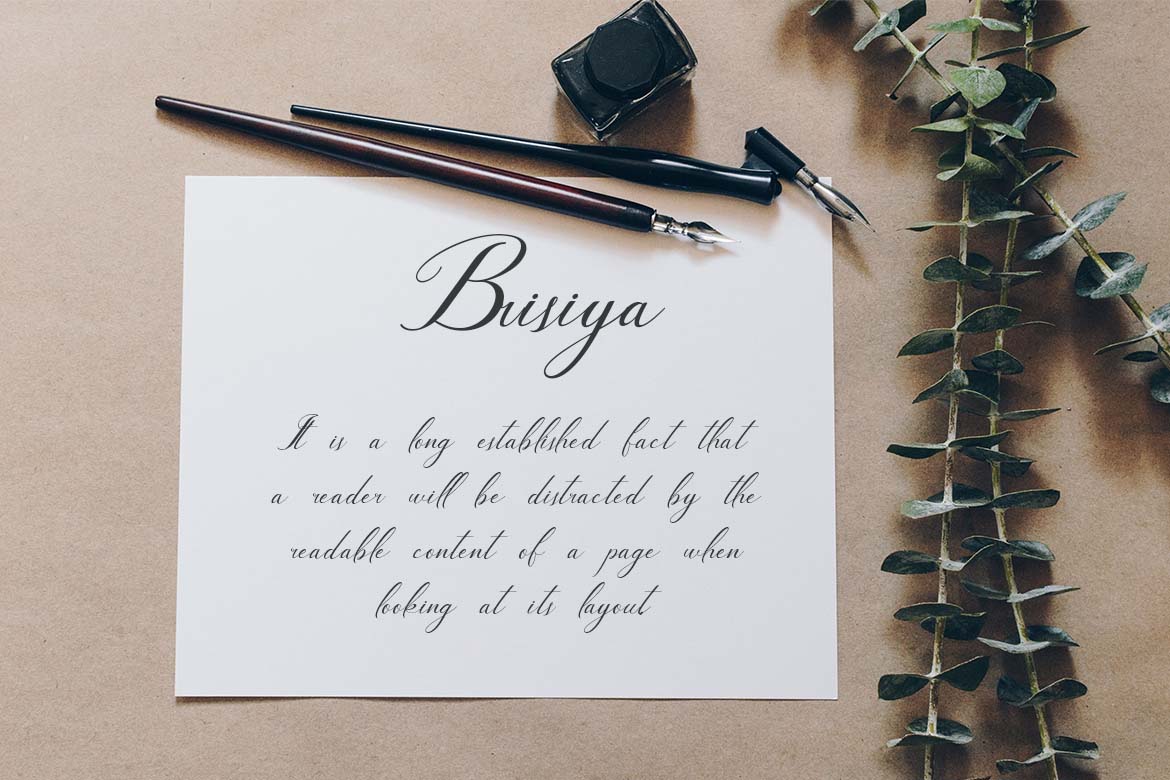 Brisiya
It is a long established fact that
a reader will be distracted by the
readable content of a page when
looking at its layout